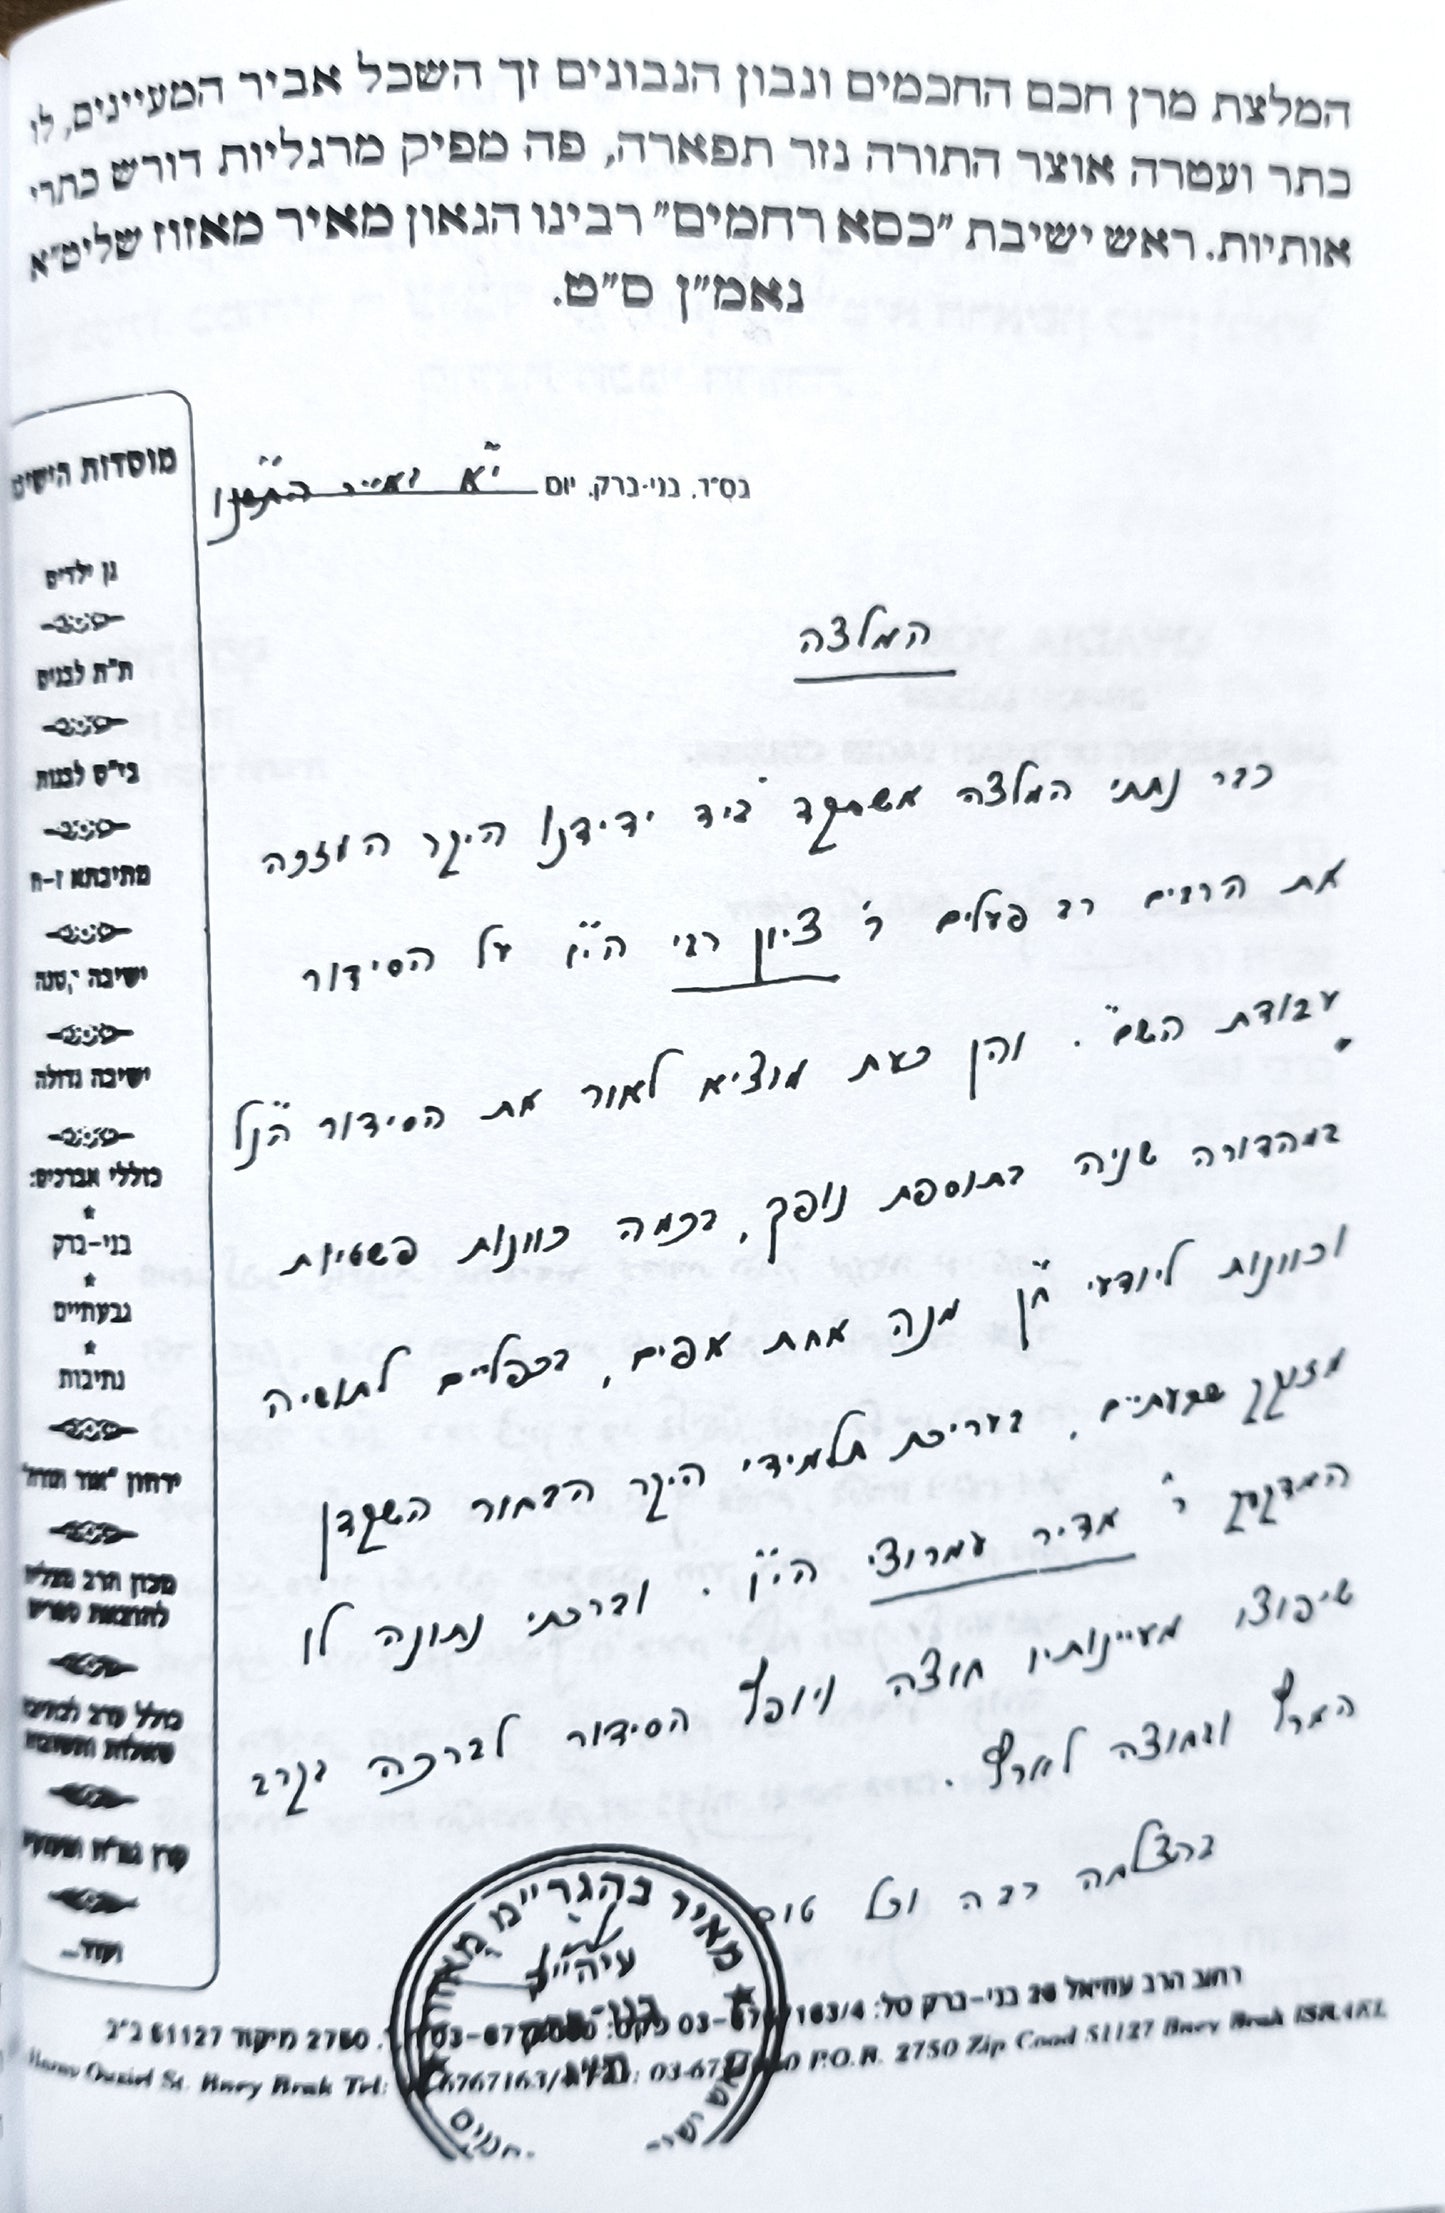 המלצת מרן חכם החכמים ונבון הנבונים זך השכל אביר המעיינים, לו
כתר ועטרה אוצר התורה נזר תפארה, פה מפיק מרגליות דורש כתרי
אותיות. ראש ישיבת "כסא רחמים" רבינו הגאון מאיר מאזוז שליט"א
נאמ"ן ס"ט.
בס"ד, בני-ברק, יום י"א
המלצה
כבר נתתי המלצה אשתקד ביד ידידנו היקר המזכה
את הרבים רב פעלים ר' ציון רגי הי"ו על הסידור
עבודת השם". והן כעת מוציא לאור את הסידור הנ"ל
במהדורה שניה בתוספת נופך, בכמה כוונות פשטיות
וכוונות ליודעי ח"ן מנה אחת אפים, בכפליים לתושיה
מזוקק שבעתיים, בעריכת תלמידי היקר הבחור השקדן
המדקדק ר' אדיר עמרוצי הי"ו. וברכתי נתונה לו
שיפוצו מעיינותיו חוצה ויופץ הסידור לברכה בקרב
הארץ ובחוצה לארץ.
בהצלחה רבה וכל טוב
מוסדות הישיב
גן ילדים
ת"ת לבנים
בי"ס לבנות
מתיבתא ז-ח
ישיבה קטנה
ישיבה גדולה
כוללי אברכים:
בני-ברק
גבעתיים
נתיבות
ירחון "אור תורה"
מכון הרב מצליח
להוצאת ספרים
כולל ערב
שאלות ותשובות
קרן
ועוד...
מאיר בהגרי"מ מאזוז
עיה"ק
בני-ברק
ת"ו
רחוב הרב עוזיאל 26 בני-ברק טל: 03-6767163/4 פקס: 2750 מיקוד 51127 ב"ב
Ouziel St. Bney Brak Tel: 6767163/4 P.O.B. 2750 Zip Cood 51127 Bney Brak ISRAEL